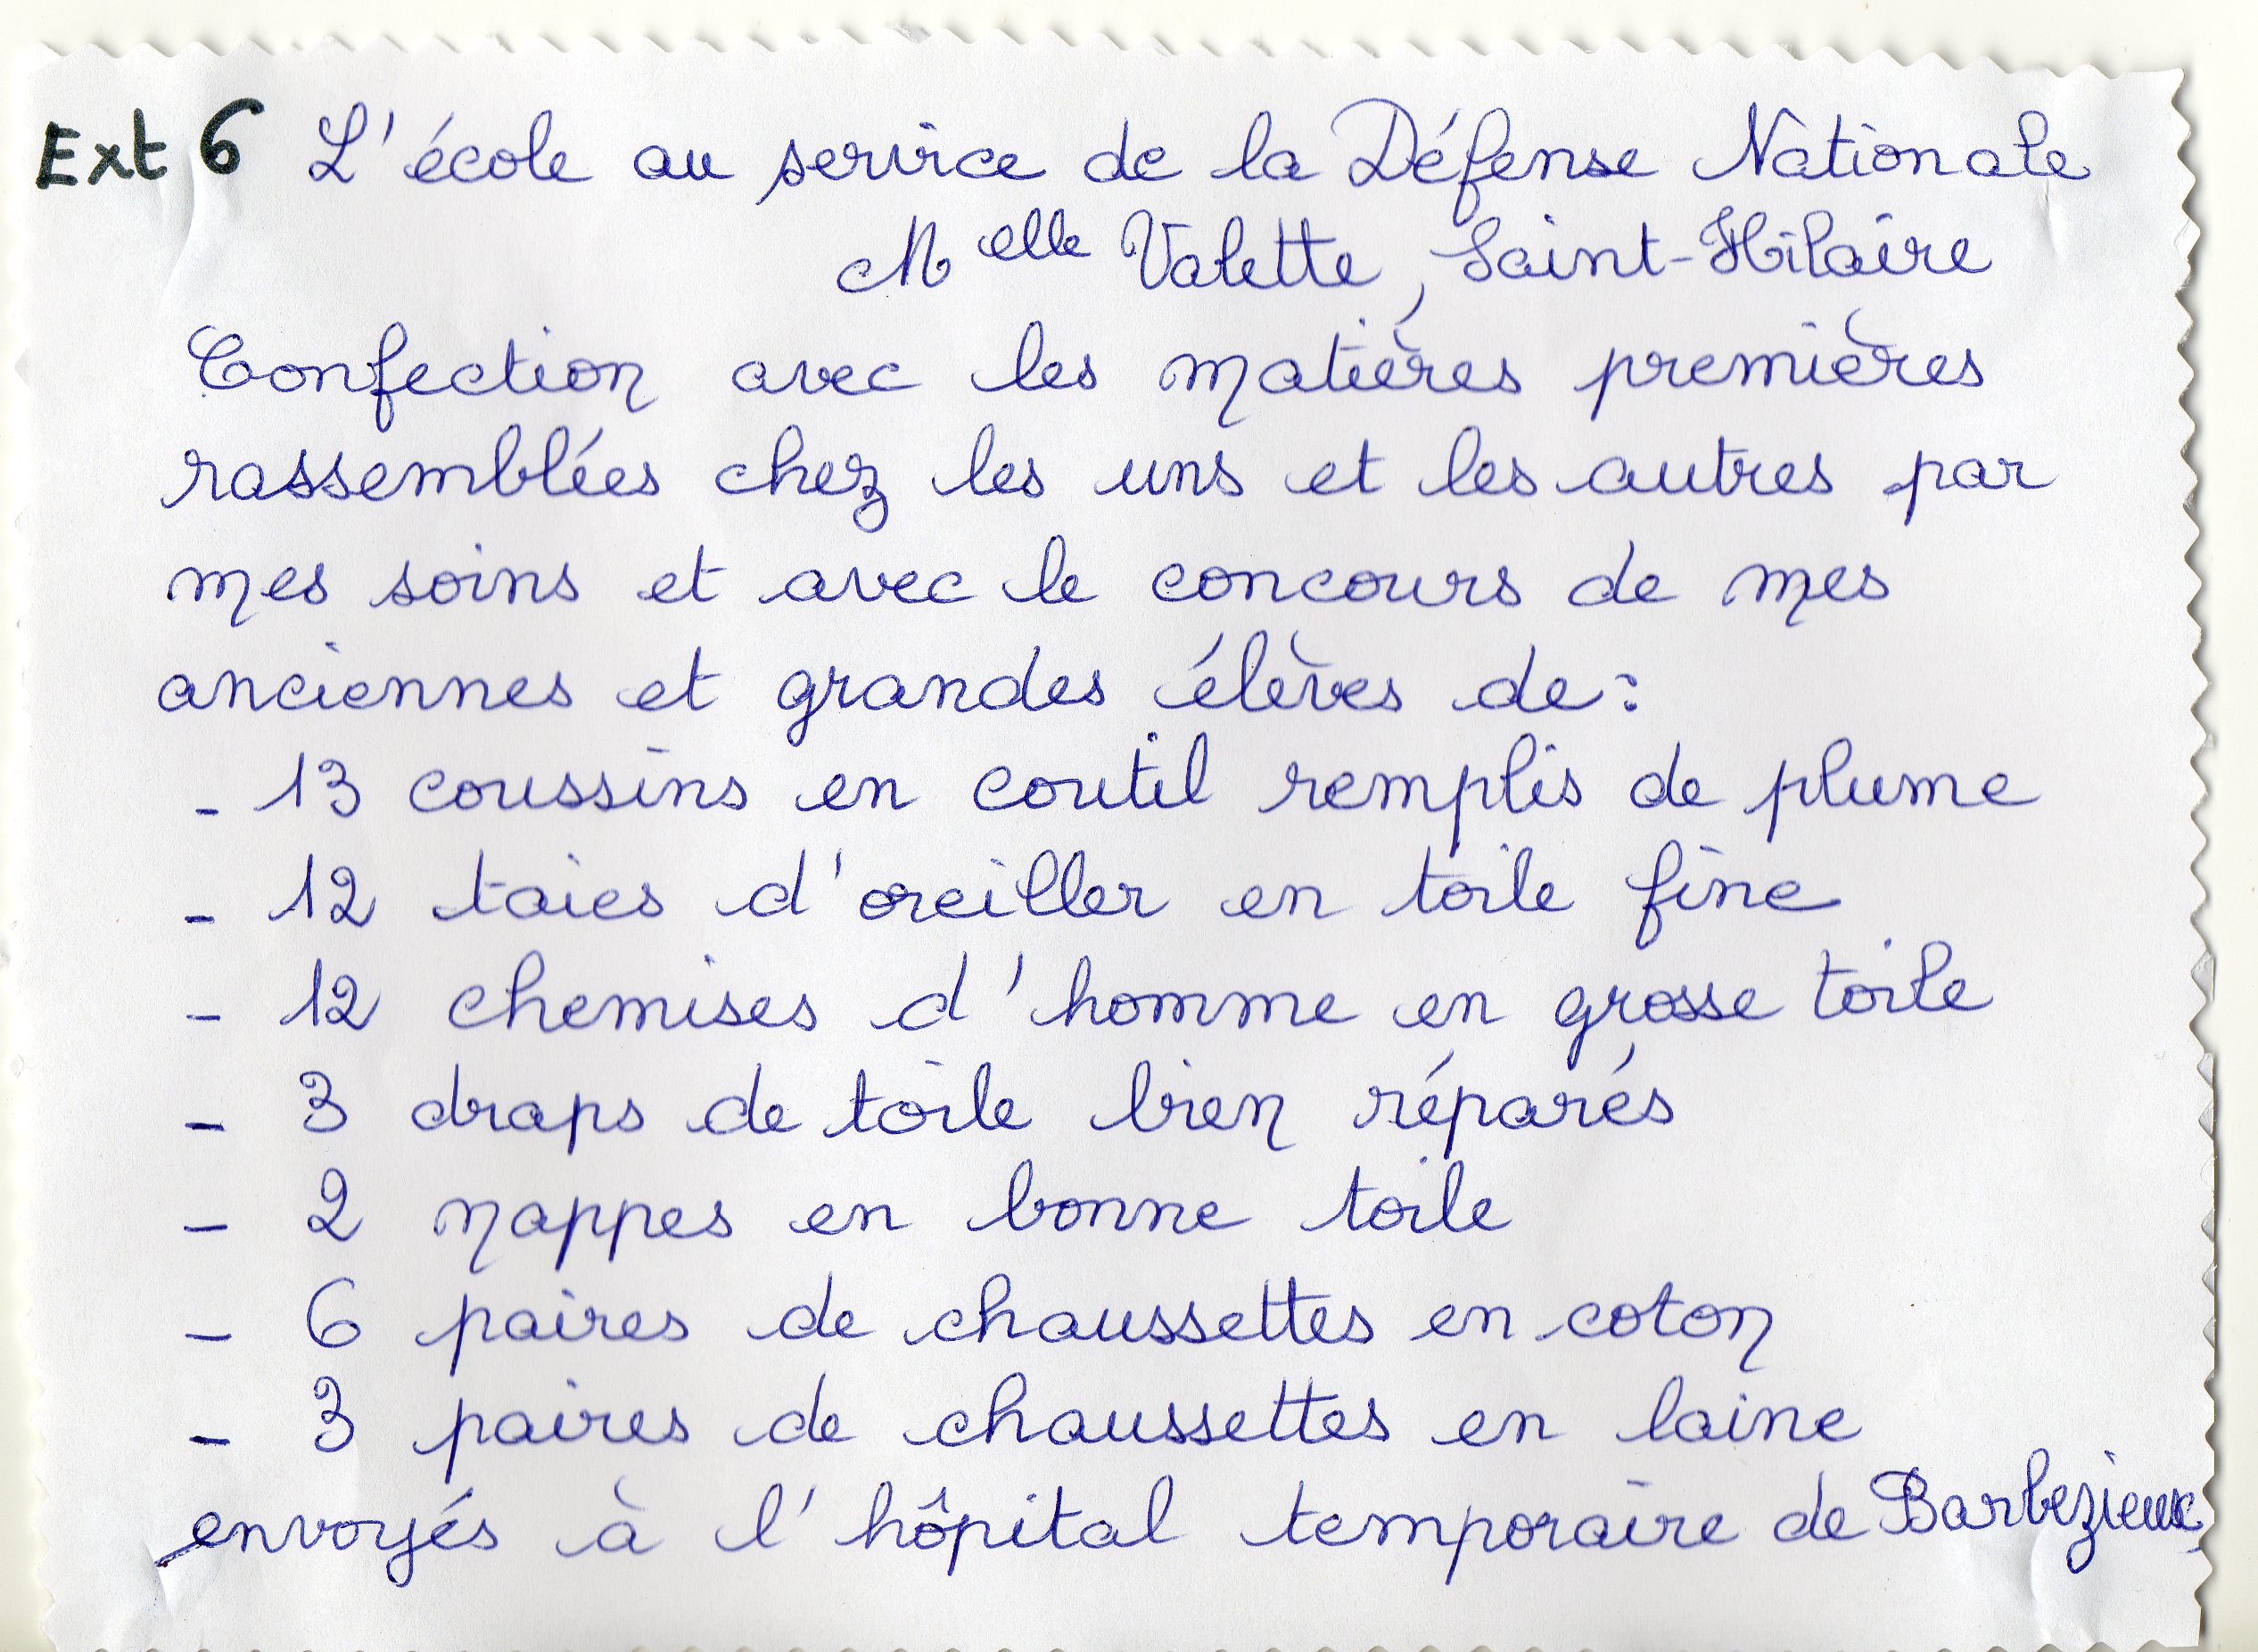 Ext 6 L'école au service de la Défense Nationale
Melle Valette, Saint-Hilaire
Confection avec les matières premières
rassemblées chez les uns et les autres par
mes soins et avec le concours de mes
anciennes et grandes élèves de :
- 13 coussins en coutil remplis de plume
- 12 taies d'oreiller en toile fine
- 12 chemises d'homme en grosse toile
- 3 draps de toile bien réparés
- 2 nappes en bonne toile
- 6 paires de chaussettes en coton
- 3 paires de chaussettes en laine
envoyés à l'hôpital temporaire de Barbezieux.